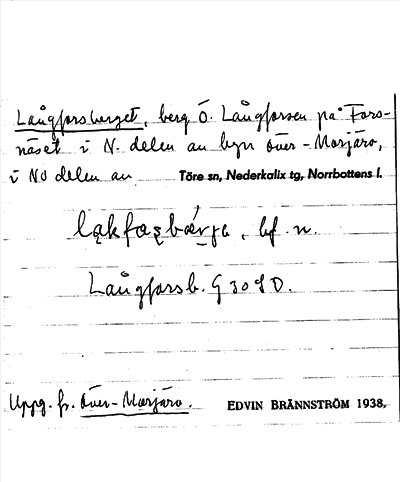 Långforsberget, berg Ö. Långforsen på Fors-
näset i N. delen av byn Över-Morjärv,
i NO delen av Töre sn, Nederkalix tg, Norrbottens l.
bf. n.
Långforsb. G 30 9 D.
Uppg. fr. Över-Morjärv. EDVIN BRÄNNSTRÖM 1938.